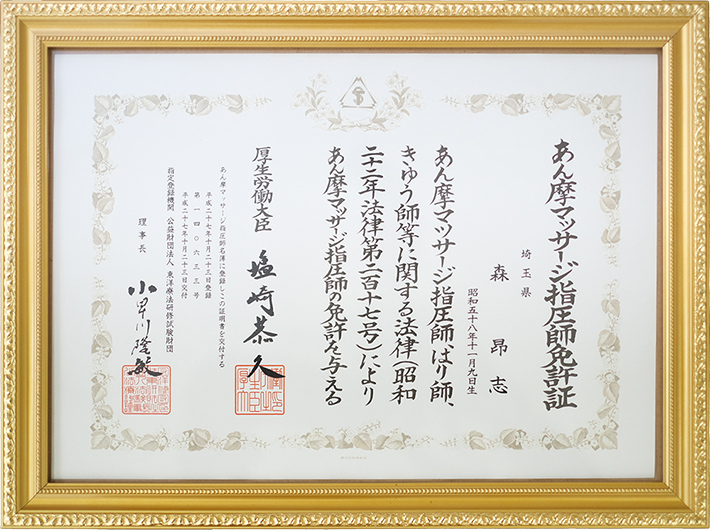 あん摩マツサージ指圧師免許証
埼玉県
森昂志
昭和五十八年十一月九日生
あん摩マツサージ指圧師、はり師、
きゆう師等に関する法律（昭和
二十二年法律第二百十七号）により
あん摩マツサージ指圧師の免許を与える
厚生労働大臣 塩崎恭久
あん摩マツサージ指圧師名簿に登録しこの証明書を交付する
平成二十七年十月二十三日登録
第一四〇六三三号
平成二十七年十月二十三日交付
指定登録機関 公益財団法人 東洋療法研修試験財団
理事長 小早川隆敏